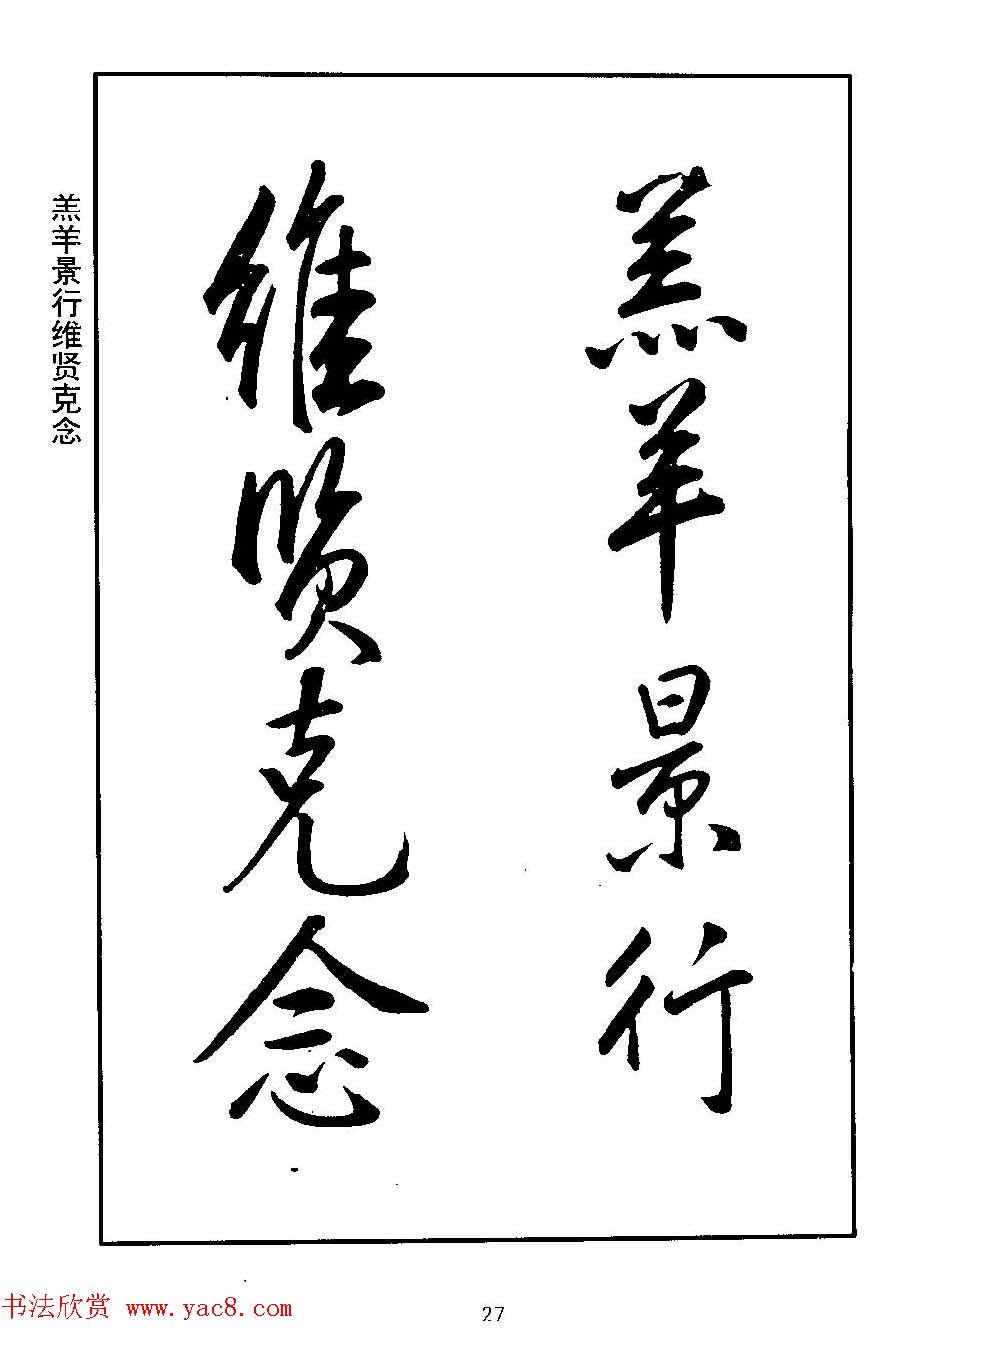 羔羊景行
维贤克念
羔羊景行维贤克念
书法欣赏 www.yac8.com
27